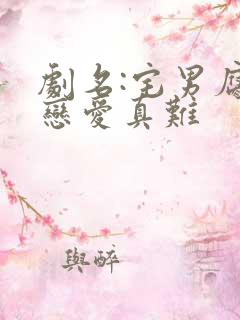 劇名:宅男
戀愛真難
與醉